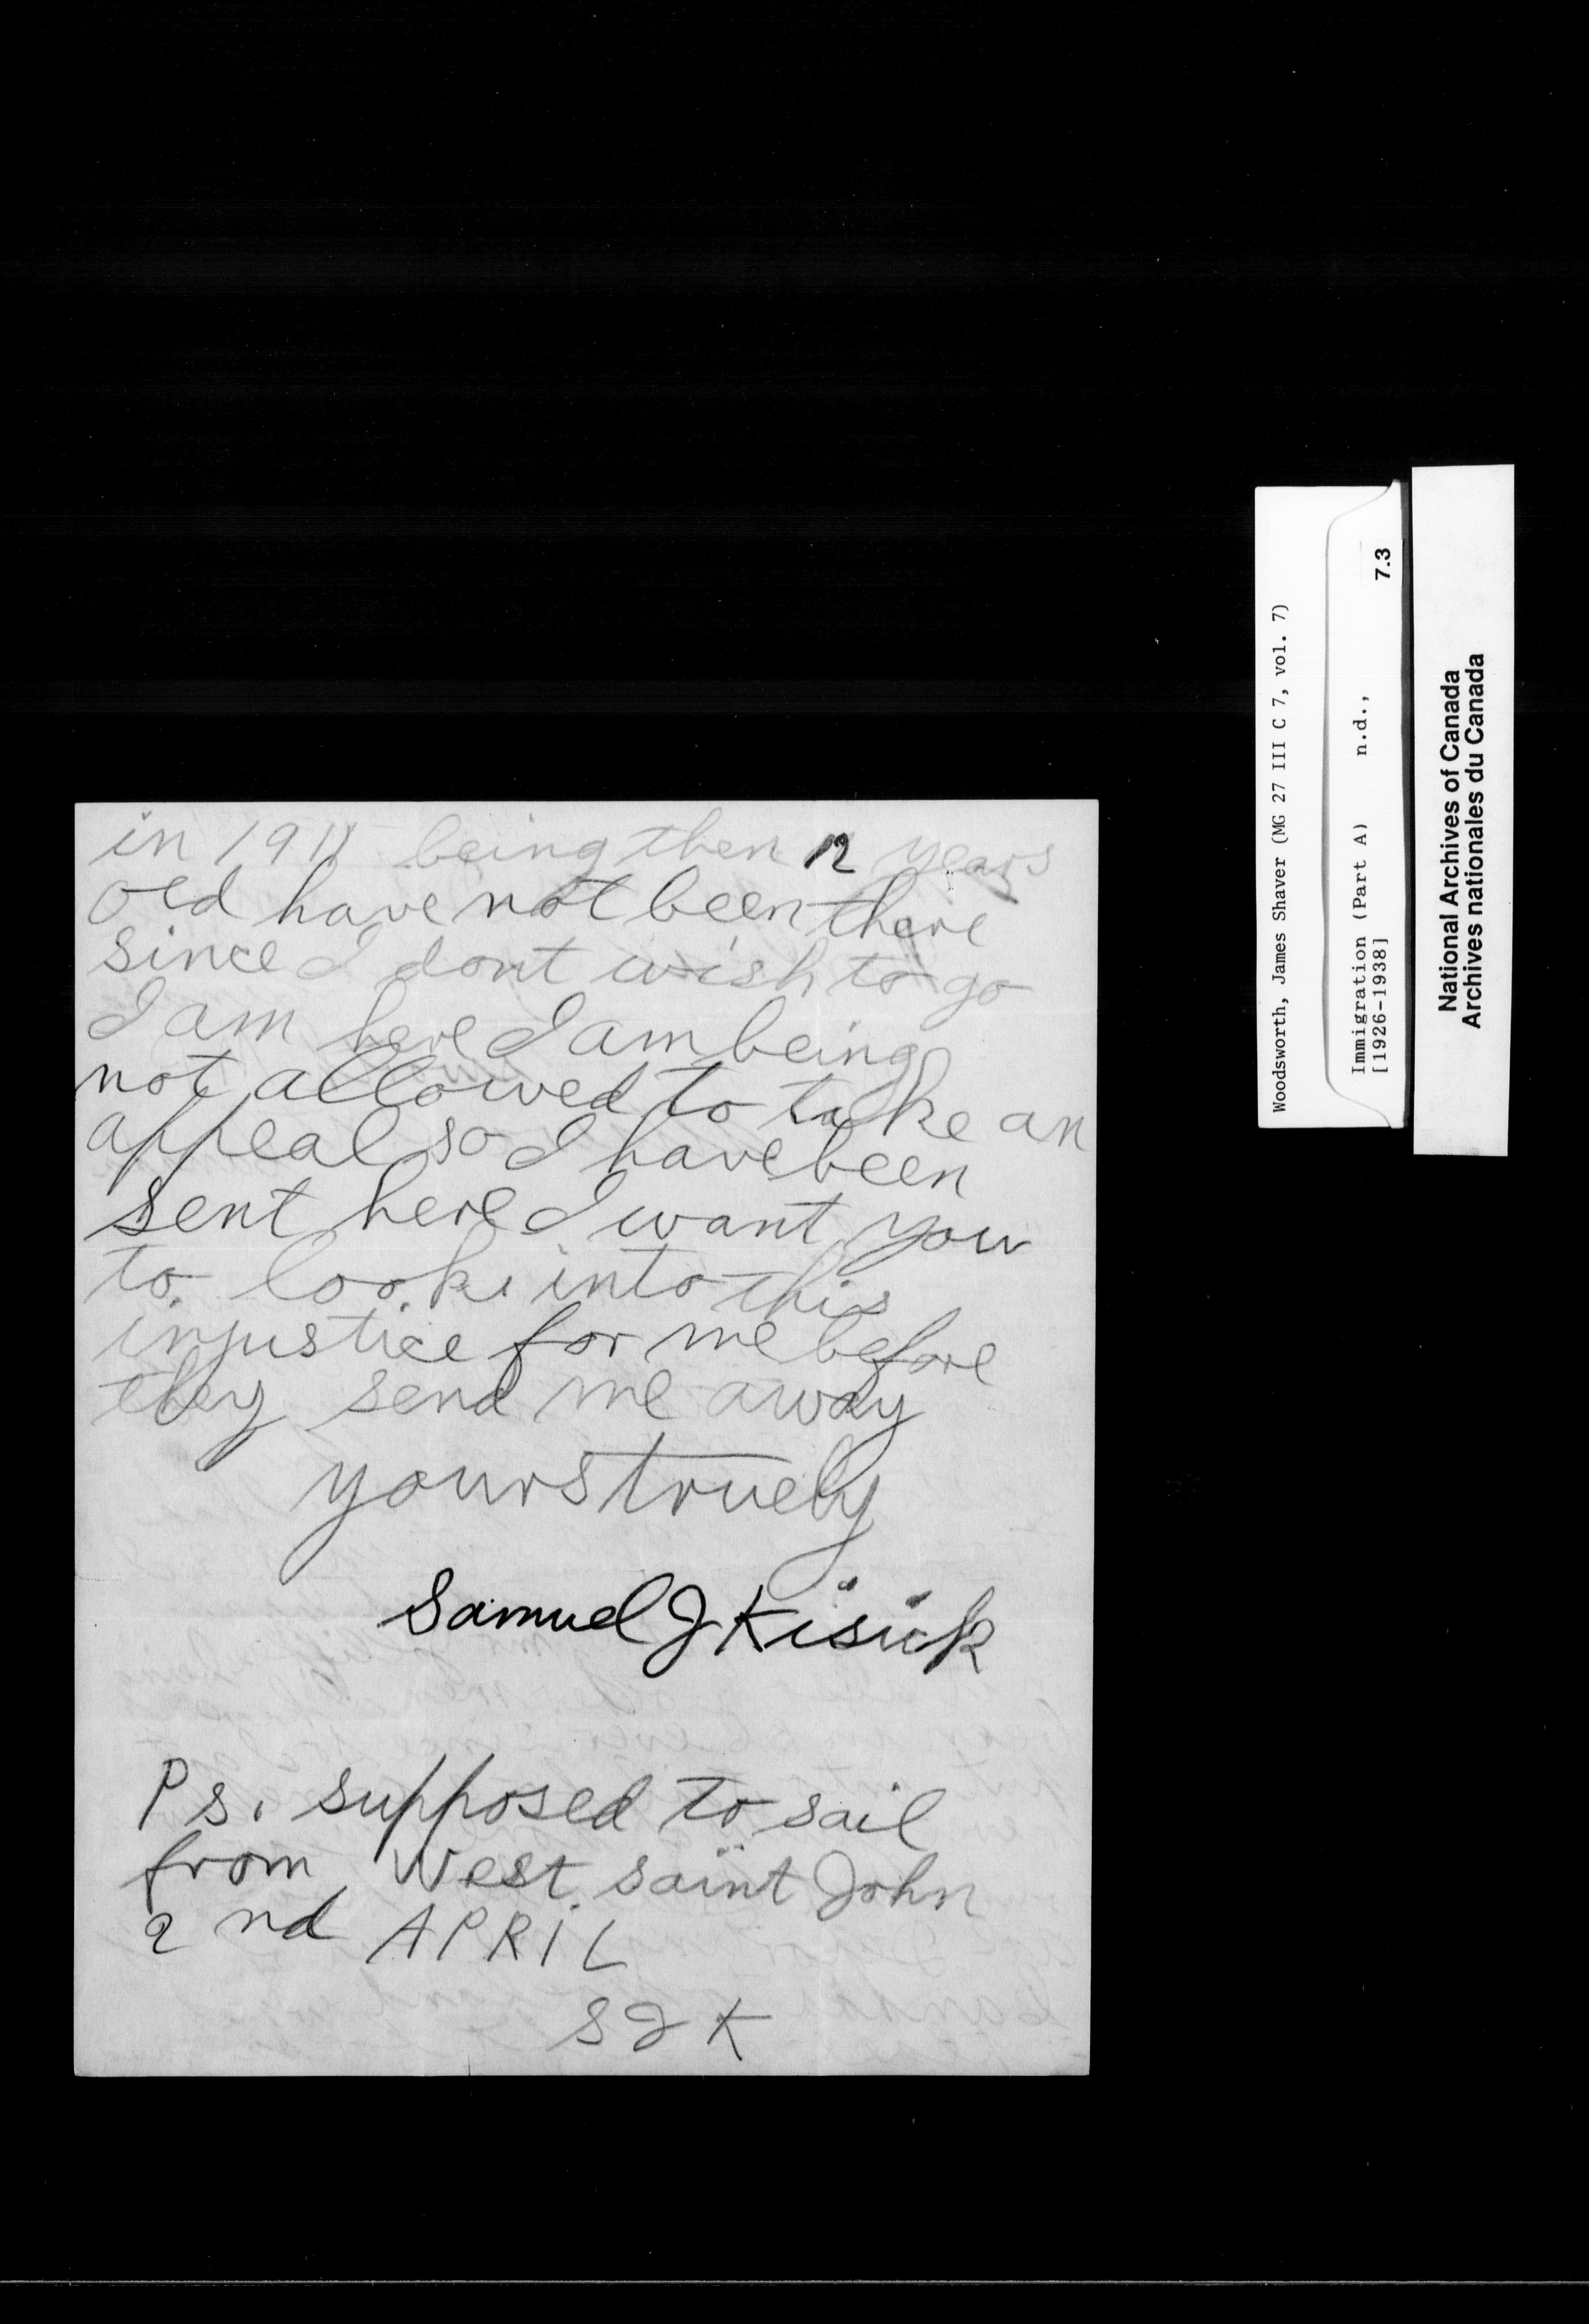 in 1911 being then 12 years
old have not been there
since I dont wish to go
I am here I am being
not allowed to take an
appeal so I have been
sent here I want you
to look into this
injustice for me before
they send me away
yours truely
Samuel J Kisick
Ps. supposed to sail
from West saint John
2nd APRIL
SJK
Woodsworth, James Shaver (MG 27 III C 7, vol. 7)
Immigration (Part A) n.d.,
[1926-1938]
7.3
National Archives of Canada
Archives nationales du Canada